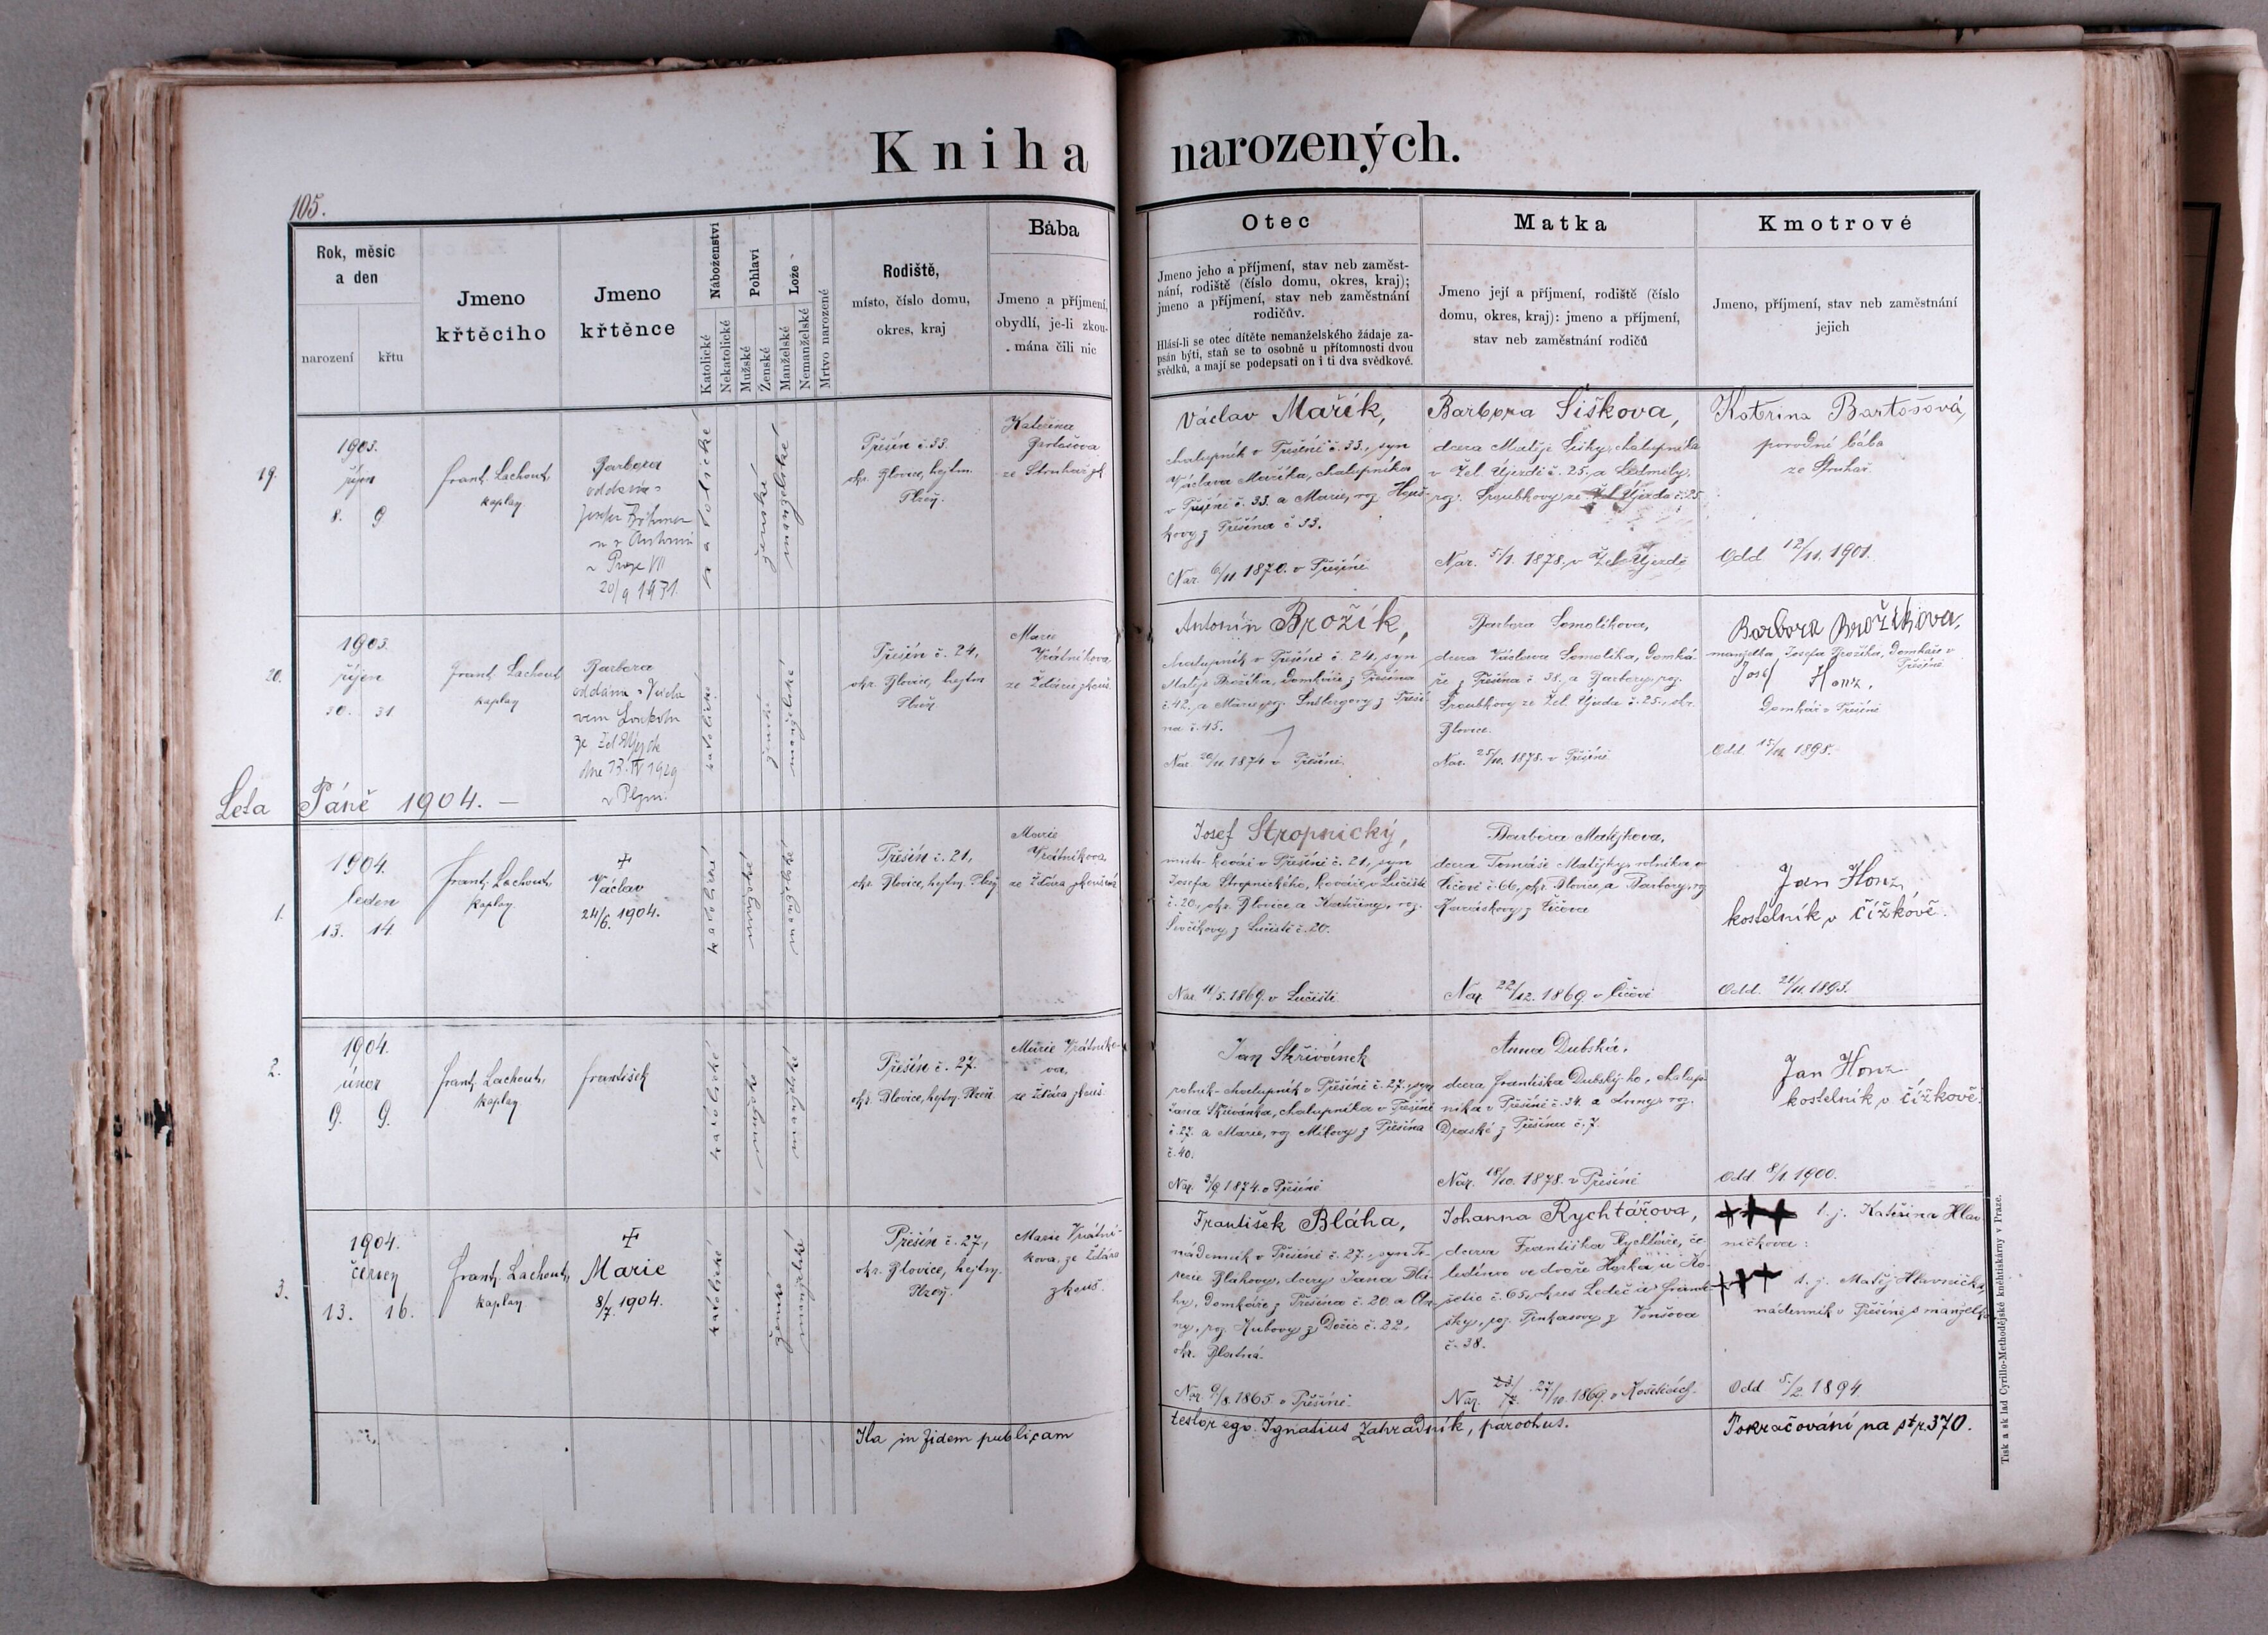 Kniha narozených.
105.
Rok, měsíc
a den
narození
křtu
Jmeno
křtěcího
Jmeno
křtěnce
Náboženství
Katolické
Nekatolické
Pohlaví
Mužské
Ženské
Lože
Manželské
Nemanželské
Mrtvo narozené
Rodiště,
místo, číslo domu,
okres, kraj
Bába
Jmeno a příjmení,
obydlí, je-li zkou-
mána čili nic
Otec
Jmeno jeho a příjmení, stav neb zaměst-
nání, rodiště (číslo domu, okres, kraj);
jmeno a příjmení, stav neb zaměstnání
rodičův.
Hlásí-li se otec dítěte nemanželského žádaje za-
psán býti, staň se to osobně u přítomnosti dvou
svědků, a mají se podepsati on i ti dva svědkové.
Matka
Jmeno její a příjmení, rodiště (číslo
domu, okres, kraj): jmeno a příjmení,
stav neb zaměstnání rodičů
Kmotrové
Jmeno, příjmení, stav neb zaměstnání
jejich
19.
1903.
říjen
8. 9.
Frant. Lachout,
kaplan
Barbora
oddána s
v Praze VII
20/9 1931
katolické
ženské
manželské
Přešín č. 33.
okr. Blovice, hejtm.
Plzeň.
Kateřina
Bartošova
ze Struhař zk.
Václav Mařík,
chalupník v Přešíně č. 33., syn
Václava Maříka, chalupníka
v Přešíně č. 33. a Marie, roz. Houš-
kovy z Přešína č. 33.
Nar. 6/11 1870. v Přešíně
Barbora Šiškova,
dcera Matěje Šišky, chalupníka
v Žel. Újezdě č. 25. a Ludmily,
roz. Šroubkovy, ze Žel. Újezda č. 25
Nar. 5/1. 1878. v Žel. Újezdě
Kateřina Bartošová,
porodní bába
ze Struhař
Odd 12/11. 1901.
20.
1903.
říjen
30. 31.
Frant. Lachout
kaplan
Barbora
oddána s Václa
vem
ze Žel. Újezda
dne 13. IV 1929
v Plzni
katolické
ženské
manželské
Přešín č. 24,
okr. Blovice, hejtm
Plzeň
Marie
Vrátníkova
ze Žďáru zkouš.
Antonín Brožík,
chalupník v Přešíně č. 24, syn
Matěje Brožíka, domkáře z Přešína
č. 42., a Marie, roz. z Přeší
na č. 45.
Nar. 20/11. 1874 v Přešíně.
Barbora Somolíkova,
dcera Václava Somolíka, domká-
ře z Přešína č. 38, a Barbory, roz.
Šroubkovy ze Žel. Újezda č. 25., okr.
Blovice.
Nar. 25/10. 1878. v Přešíně
Barbora Brožíkova,
manželka Josefa Brožíka, domkáře v
Přešíně
Josef Honz,
Domkář v Přešíně
Odd. 15/11. 1898.
Léta Páně 1904. —
1.
1904.
leden
13. 14.
Frant. Lachout,
kaplan.
✝
Václav
24/6. 1904.
katolické
mužské
manželské
Přešín č. 21,
okr. Blovice, hejtm. Plzeň
Marie
Vrátníkova,
ze Žďára zkoušená
Josef Stropnický,
mistr kovář v Přešíně č. 21., syn
Josefa Stropnického, kováře v Lučišti
č. 20., okr. Blovice a Kateřiny, roz.
Ševčíkovy z Lučiště č. 20.
Nar. 11/5. 1869. v Lučišti.
Barbora Matějkova,
dcera Tomáše Matějky, rolníka v
Číčově č. 66, okr. Blovice, a Barbory, roz
z Číčova
Nar. 22/12. 1869. v Číčově
Jan Honz,
kostelník v Čížkově.
Odd. 21/11. 1893.
2.
1904.
únor
9. 9.
Frant. Lachout,
kaplan
František
katolické
mužské
manželské
Přešín č. 27.
okr. Blovice, hejtm. Plzeň
Marie Vrátníko-
va,
ze Žďára zkouš.
Jan Skřivánek
rolník chalupník v Přešíně č. 27., syn
Jana Skřivánka, chalupníka v Přešíně
č. 27. a Marie, roz. Míkovy z Přešína
č. 40.
Nar. 3/9. 1874. v Přešíně
Anna Dubská,
dcera Františka Dubského, chalup-
níka v Přešíně č. 34. a Anny, roz.
z Přešína č. 7.
Nar. 18/10. 1878. v Přešíně
Jan Honz
kostelník v Čížkově.
Odd. 8/1 1900.
3.
1904.
červen
13. 16.
Frant. Lachout,
kaplan
✝
Marie
8/7. 1904.
katolické
ženské
manželské
Přešín č. 27,
okr. Blovice, hejtm.
Plzeň.
Marie Vrátní-
kova, ze Žďára
zkouš.
František Bláha,
nádenník v Přešíně č. 27., syn Te-
rezie Bláhovy, dcery Jana Blá-
hy, domkáře z Přešína č. 20. a An-
ny, roz. Kubovy z č. 22,
okr. Blatná.
Nar. 9/8. 1865 v Přešíně.
Johanna Rychtářova,
dcera Františka Rychtáře, če-
ledína ve dvoře Horka u Ko-
šetic č. 65, okres Ledeč a Franti-
šky, roz. z Vonšova
č. 38.
Nar. 27/10. 1869. v Košeticích.
+++ t. j. Kateřina Hlav
ničkova:
+++ t. j. Matěj Hlavnička,
nádenník v Přešíně s manželk
Odd 5/2. 1894
Ita in fidem publicam
testor ego. Ignatius Zahradník, parochus.
Pokračování na str. 370.
Tisk a sklad Cyrillo-Methodějské knihtiskárny v Praze.